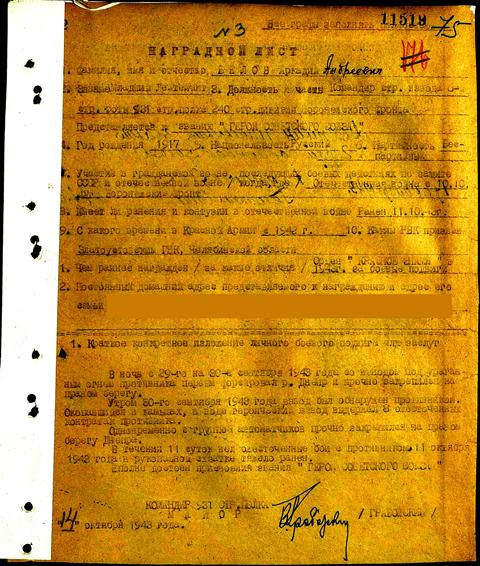 11518
№ 3 Все графы заполнять 75
НАГРАДНОЙ ЛИСТ
1. Фамилия, имя и отчество БЕЛОВ Аркадий Андреевич
2. Звание Гв. лейтенант 3. Должность и часть Командир стр. взвода
стр. роты 931 стр. полка 240 стр. дивизии Воронежского фронта
Представляется к званию " ГЕРОЙ СОВЕТСКОГО СОЮЗА "
4. Год рождения 1917 5. Национальность Русский 6. Партийность Бес-
партийный
7. Участие в гражданской войне, последующих боевых действиях по защите
СССР и отечественной войне / где, когда / Отечественная война с 10.10.
Воронежский фронт
8. Имеет ли ранения и контузии в отечественной войне Ранен 11.10.43г.
9. С какого времени в Красной Армии с 1942 г. 10. Каким РВК призван
Златоустовским РВК, Челябинской области
Орден " КРАСНОЙ ЗВЕЗДЫ " в
1. Чем ранее награжден / за какие отличия / 1943г. за боевые подвиги
2. Постоянный домашний адрес представляемого к награждению и адрес его
семьи
1. Краткое конкретное изложение личного боевого подвига или заслуг
В ночь с 29-го на 30-е сентября 1943 года со взводом под ураган-
ным огнем противника первым форсировал р. Днепр и прочно закрепился на
правом берегу.
Утром 30-го сентября 1943 года взвод был обнаружен противником.
Окопавшийся в камышах, в воде героический взвод выдержал 8 ожесточенных
контратак противника.
Одновременно с группой автоматчиков прочно закрепился на правом
берегу Днепра.
В течении 11 суток вел ожесточенные бои с противником. 11 октября
1943 года в рукопашной схватке тяжело ранен.
Вполне достоин присвоения звания " ГЕРОЙ СОВЕТСКОГО СОЮЗА "
КОМАНДИР 931 СТР. ПОЛКА
МАЙОР / ГРАБОВСКИЙ /
"14" октября 1943 года.